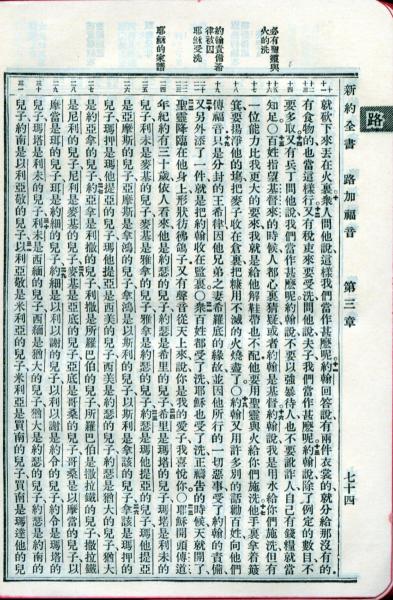 新約全書 路加福音 第三章 七十四
路
必有聖靈與
火的洗
約翰責備希
律被囚
耶穌受洗
耶穌的家譜
就砍下來丟在火裏衆人問他說這樣我們當作甚麼呢約翰回答說有兩件衣裳的就分給那沒有的
有食物的也當這樣行又有稅吏來要受洗問他說夫子我們當作甚麼呢約翰說除了例定的數目不
要多取又有兵丁問他說我們當作甚麼呢約翰說不要以強暴待人也不要訛詐人自己有錢糧就當
知足〇百姓指望基督來的時候人都心裏猜疑或者約翰是基督約翰說我是用水給你們施洗但有
一位能力比我更大的要來我就是給他解鞋帶也不配他要用聖靈與火給你們施洗他手裏拿着簸
箕要揚淨他的塲把麥子收在倉裏把糠用不滅的火燒盡了〇約翰又用許多別的話勸百姓向他們
傳福音只是分封的王希律因他兄弟之妻希羅底的緣故並因他所行的一切惡事受了約翰的責備
又另外添了一件就是把約翰收在監裏〇衆百姓都受了洗耶穌也受了洗正禱告的時候天就開了
聖靈降臨在他身上形狀彷彿鴿子又有聲音從天上來說你是我的愛子我喜悅你〇耶穌開頭傳道
年紀約有三十歲依人看來他是約瑟的兒子約瑟是希里的兒子希里是瑪塔的兒子瑪塔是利未的
兒子利未是麥基的兒子麥基是雅拿的兒子雅拿是約瑟的兒子約瑟是瑪他提亞的兒子瑪他提亞
是亞摩斯的兒子亞摩斯是拿鴻的兒子拿鴻是以斯利的兒子以斯利是拿該的兒子拿該是瑪押的
兒子瑪押是瑪他提亞的兒子瑪他提亞是西美的兒子西美是約瑟的兒子約瑟是猶大的兒子猶大
是約亞拿的兒子約亞拿是利撒的兒子利撒是所羅巴伯的兒子所羅巴伯是撒拉鐵的兒子撒拉鐵
是尼利的兒子尼利是麥基的兒子麥基是亞底的兒子亞底是哥桑的兒子哥桑是以摩當的兒子以
摩當是珥的兒子珥是約細的兒子約細是以利以謝的兒子以利以謝是約令的兒子約令是瑪塔的
兒子瑪塔是利未的兒子利未是西緬的兒子西緬是猶大的兒子猶大是約瑟的兒子約瑟是約南的
兒子約南是以利亞敬的兒子以利亞敬是米利亞的兒子米利亞是買南的兒子買南是瑪達他的兒